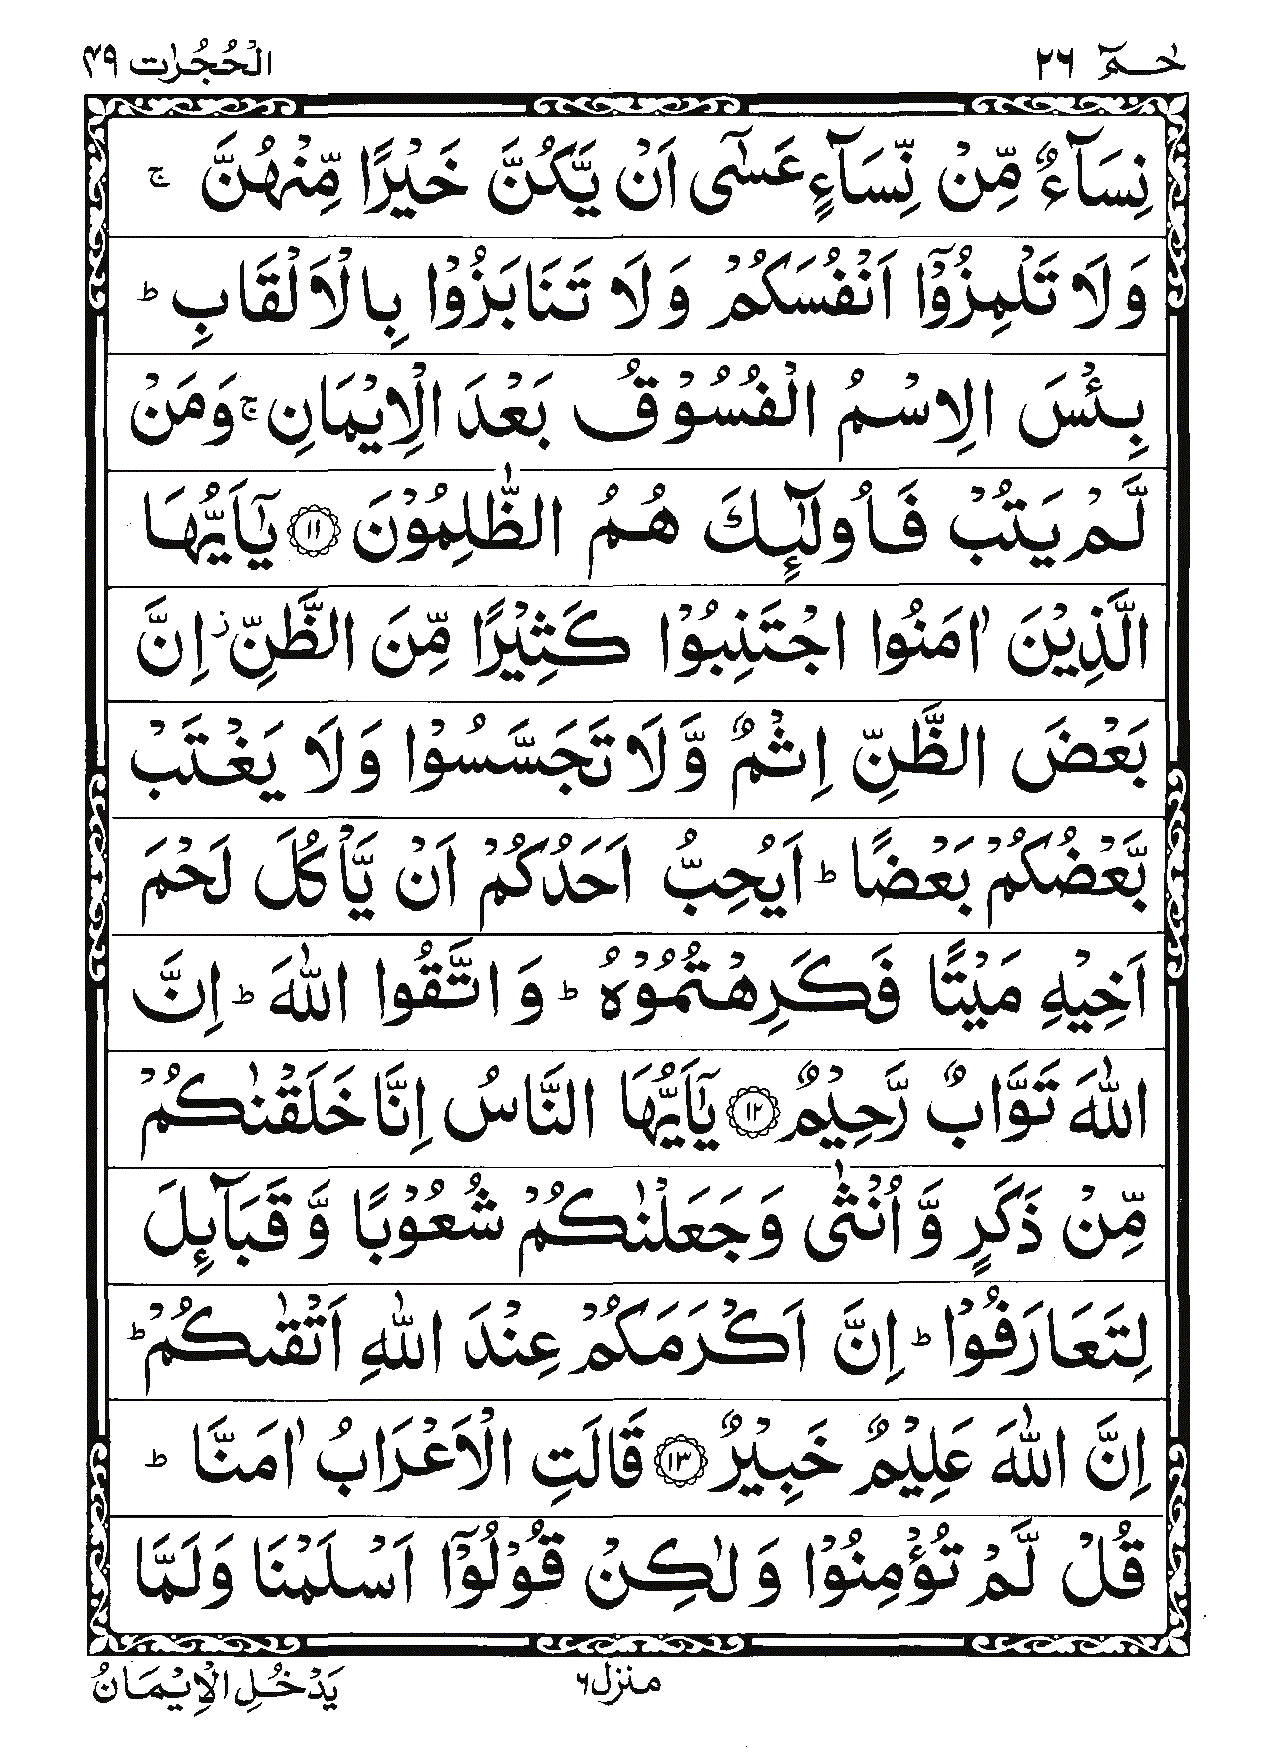 حٰـمٓ ٢٦ الْحُجُرٰت ٤٩
نِسَآءٌ مِّنْ نِّسَآءٍ عَسٰٓى اَنْ يَّكُنَّ خَيْرًا مِّنْهُنَّ ۚ
وَلَا تَلْمِزُوْۤا اَنْفُسَكُمْ وَلَا تَنَابَزُوْا بِالْاَلْقَابِ ؕ
بِئْسَ الِاسْمُ الْفُسُوْقُ بَعْدَ الْاِيْمَانِ ۚ وَمَنْ
لَّمْ يَتُبْ فَاُولٰٓئِكَ هُمُ الظّٰلِمُوْنَ ﴿١١﴾ يٰۤاَيُّهَا
الَّذِيْنَ اٰمَنُوا اجْتَنِبُوْا كَثِيْرًا مِّنَ الظَّنِّ ز اِنَّ
بَعْضَ الظَّنِّ اِثْمٌ وَّلَا تَجَسَّسُوْا وَلَا يَغْتَبْ
بَّعْضُكُمْ بَعْضًا ؕ اَيُحِبُّ اَحَدُكُمْ اَنْ يَّاْكُلَ لَحْمَ
اَخِيْهِ مَيْتًا فَكَرِهْتُمُوْهُ ؕ وَاتَّقُوا اللّٰهَ ؕ اِنَّ
اللّٰهَ تَوَّابٌ رَّحِيْمٌ ﴿١٢﴾ يٰۤاَيُّهَا النَّاسُ اِنَّا خَلَقْنٰكُمْ
مِّنْ ذَكَرٍ وَّاُنْثٰى وَجَعَلْنٰكُمْ شُعُوْبًا وَّقَبَآئِلَ
لِتَعَارَفُوْا ؕ اِنَّ اَكْرَمَكُمْ عِنْدَ اللّٰهِ اَتْقٰىكُمْ ؕ
اِنَّ اللّٰهَ عَلِيْمٌ خَبِيْرٌ ﴿١٣﴾ قَالَتِ الْاَعْرَابُ اٰمَنَّا ؕ
قُلْ لَّمْ تُؤْمِنُوْا وَلٰكِنْ قُوْلُوْۤا اَسْلَمْنَا وَلَمَّا
منزل ٦ يَدْخُلِ الْاِيْمَانُ